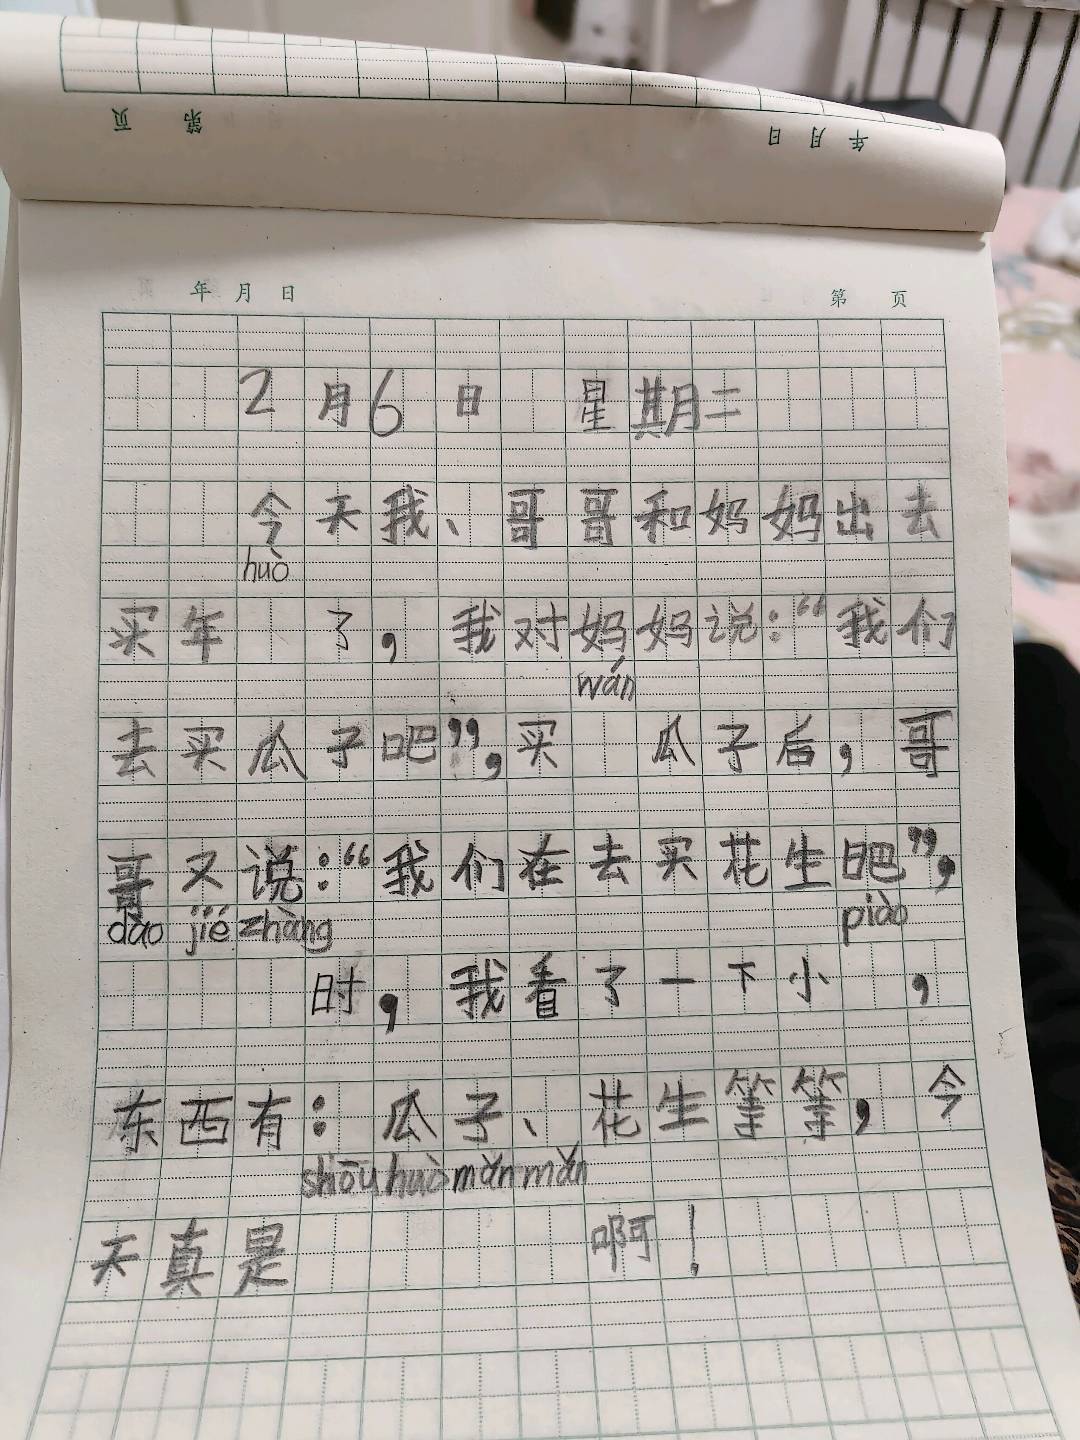 页 第 日 月 年
年 月 日 第 页
2月6日 星期二
今天我、哥哥和妈妈出去
huò
买年 了,我对妈妈说:“我们
wán
去买瓜子吧”,买 瓜子后,哥
哥又说:“我们在去买花生吧”,
dào jié zhàng piào
时,我看了一下小 ,
东西有:瓜子、花生等等,今
shōu huò mǎn mǎn
天真是 啊!